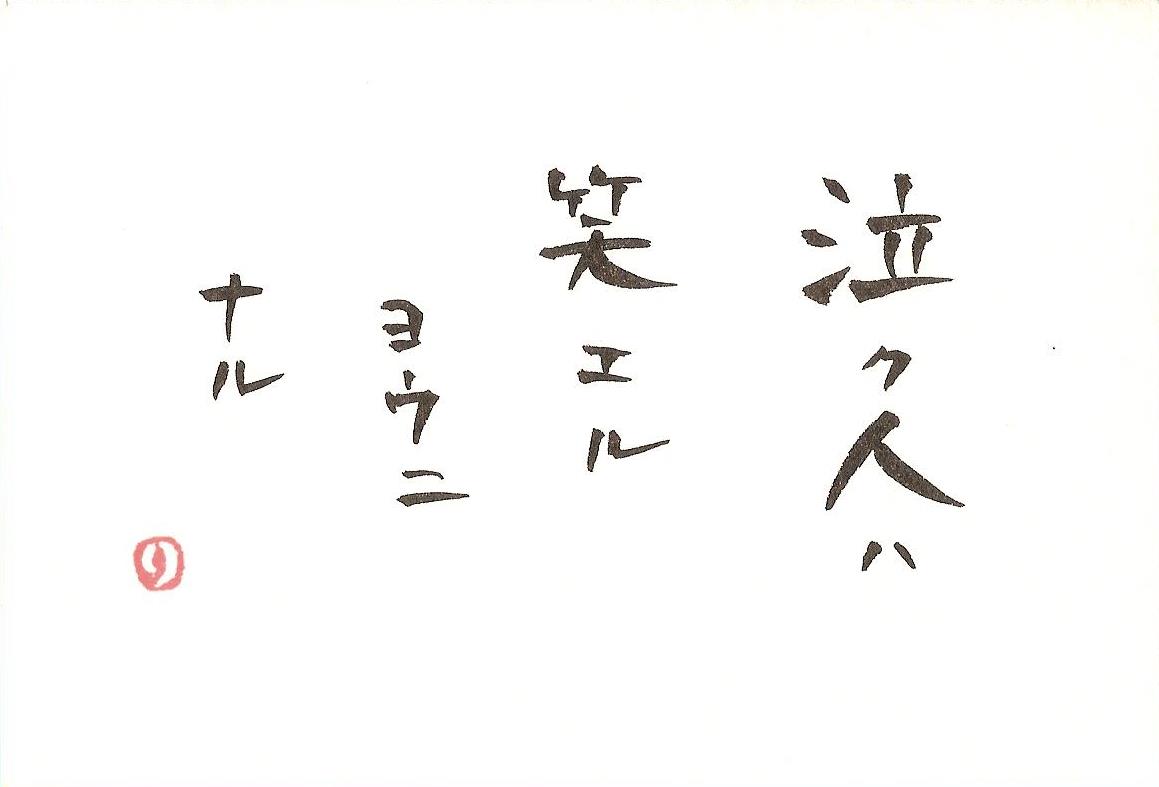 泣ク人ハ
笑エル
ヨウニ
ナル
の